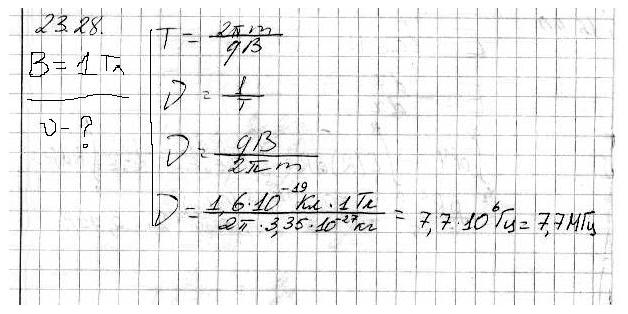 23.28.
B = 1 Тл
ν - ?
T = 2πm / qB
ν = 1 / T
ν = qB / 2πm
ν = 1,6·10⁻¹⁹ Кл · 1 Тл / 2π · 3,35·10⁻²⁷ кг = 7,7·10⁶ Гц = 7,7 МГц